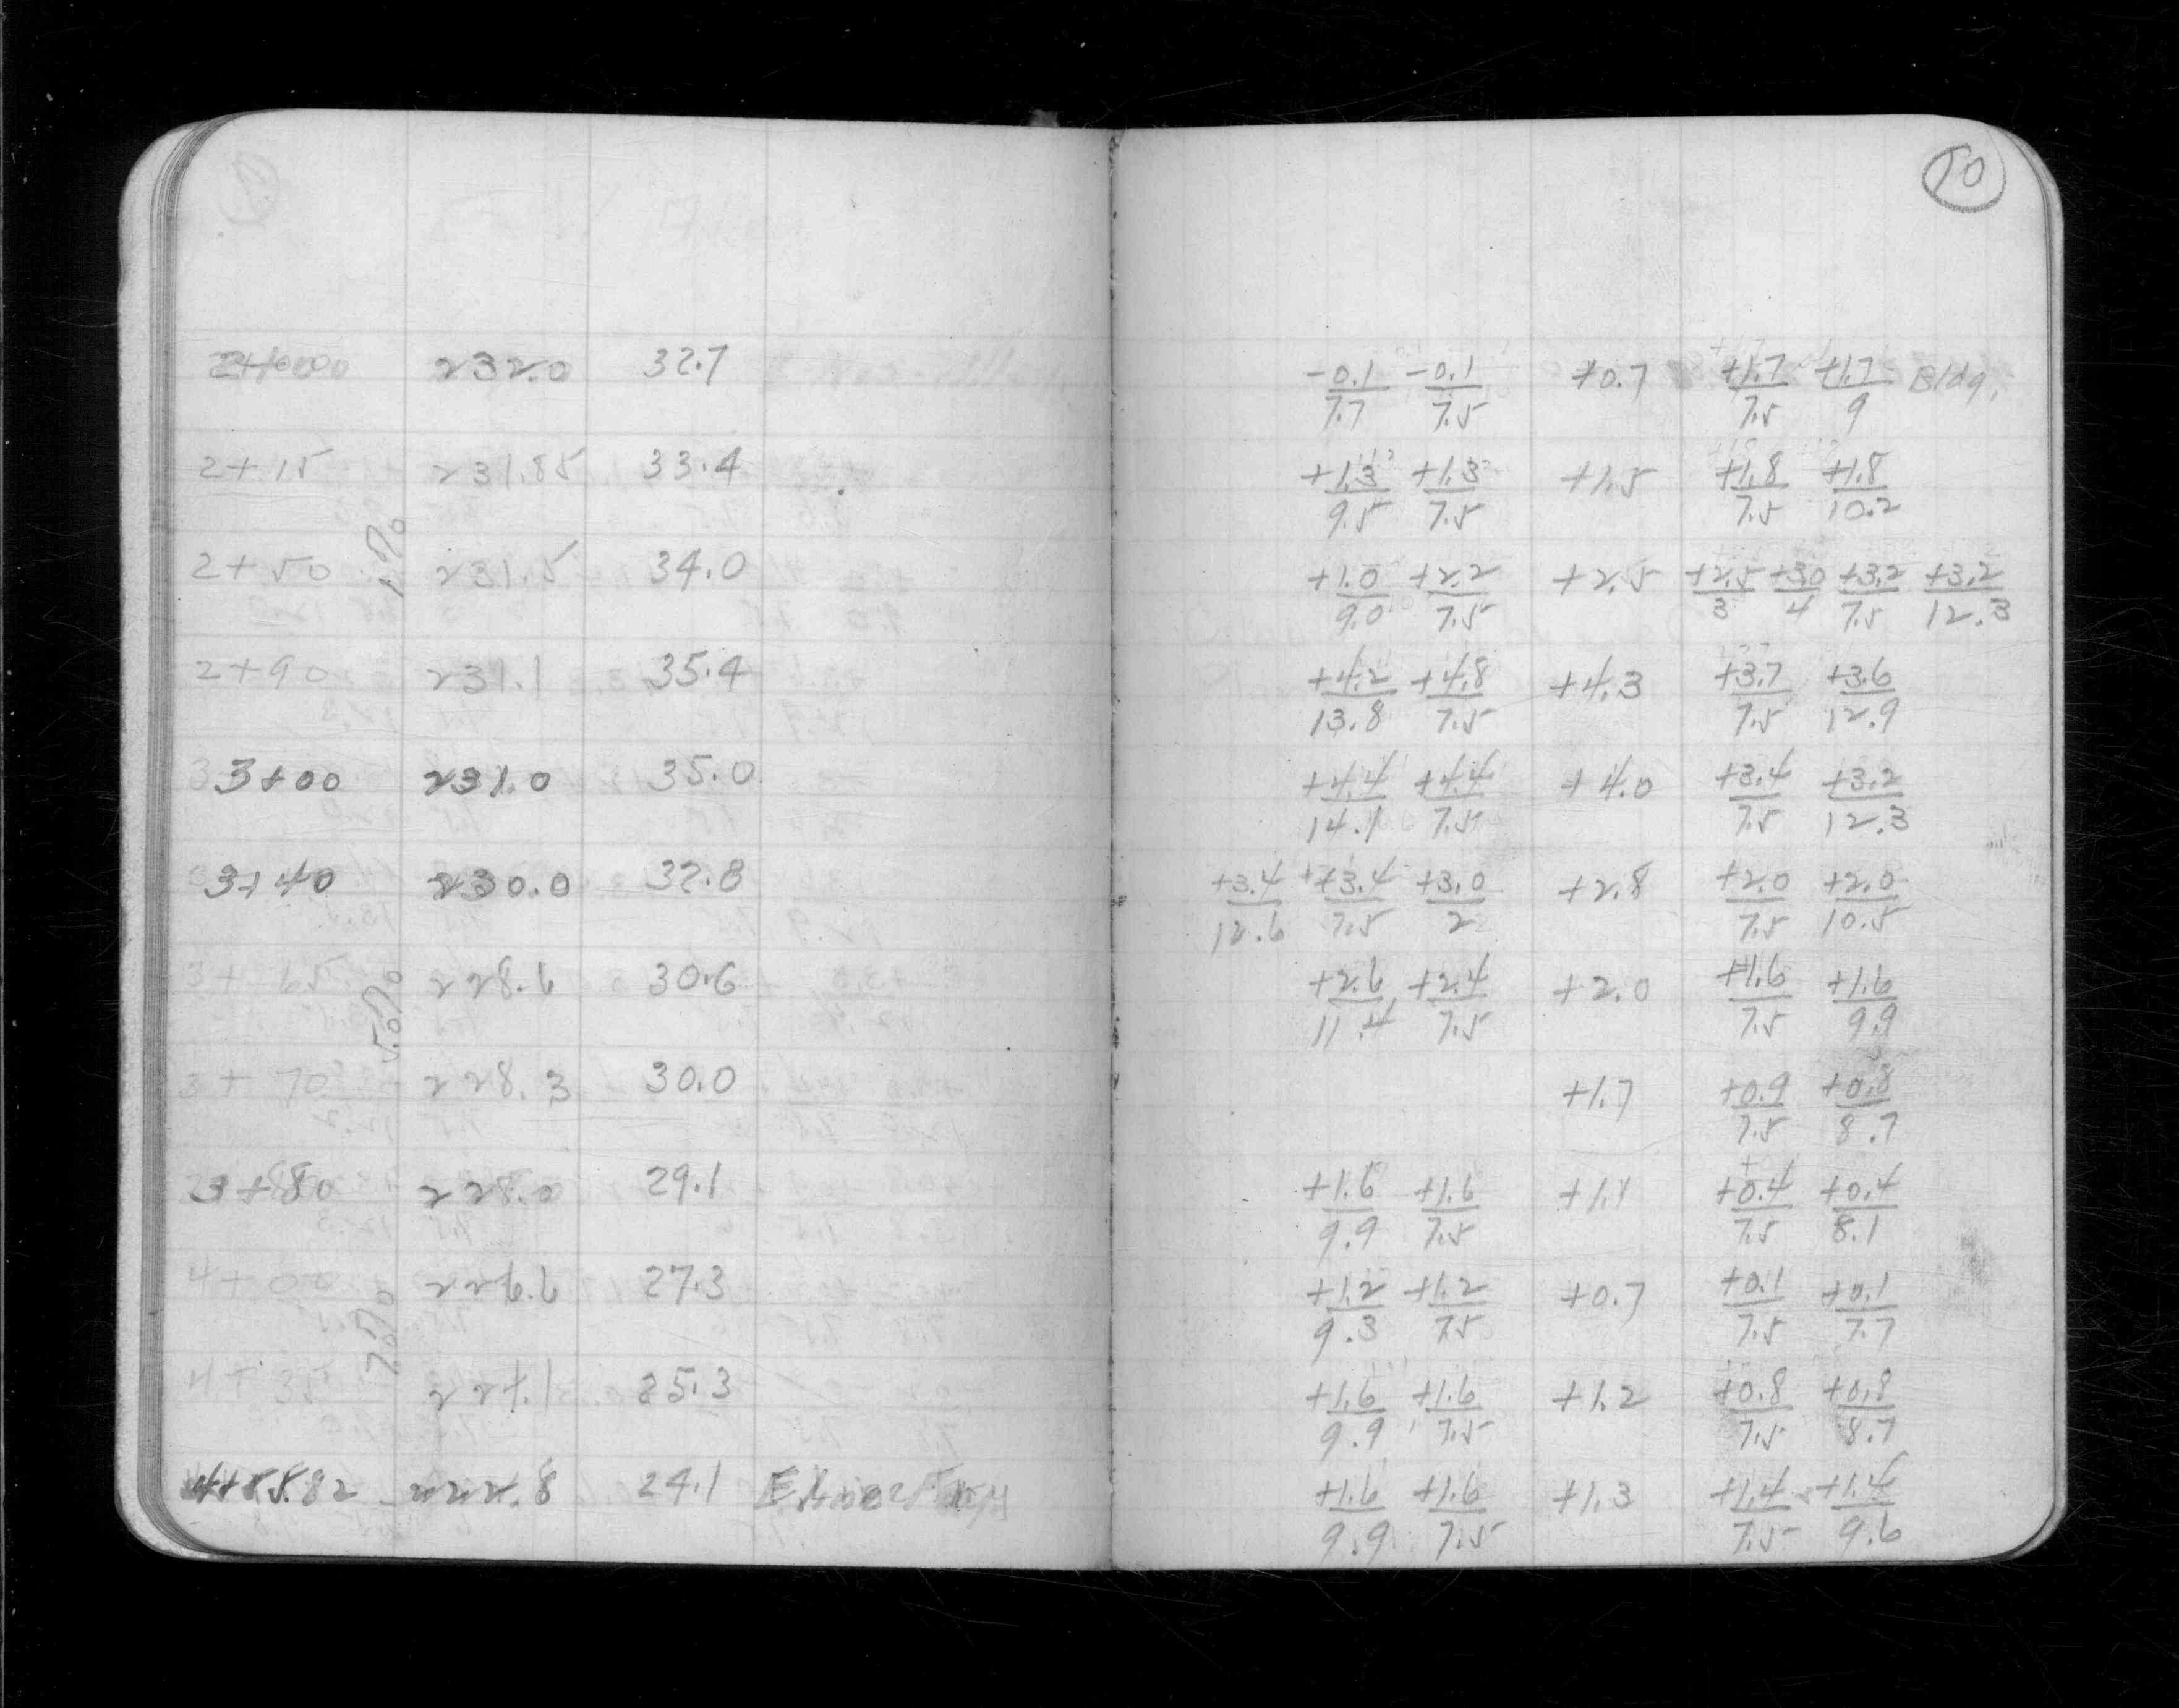 10
2+00 232.0 32.7 -0.1/7.7 -0.1/7.5 +0.7 +1.7/7.5 +1.7/9 Bldg.
2+15 231.85 33.4 +1.3/9.5 +1.3/7.5 +1.5 +1.8/7.5 +1.8/10.2
1.%
2+50 231.5 34.0 +1.0/9.0 +2.2/7.5 +2.5 +2.5/3 +3.0/4 +3.2/7.5 +3.2/12.3
2+90 231.1 35.4 +4.2/13.8 +4.8/7.5 +4.3 +3.7/7.5 +3.6/12.9
3+00 231.0 35.0 +4.4/14.1 +4.4/7.5 +4.0 +3.4/7.5 +3.2/12.3
3+40 230.0 32.8 +3.4/12.6 +3.4/7.5 +3.0/2 +2.8 +2.0/7.5 +2.0/10.5
3+65 228.6 30.6 +2.6/11.4 +2.4/7.5 +2.0 +1.6/7.5 +1.6/9.9
5.0%
3+70 228.3 30.0 +1.7 +0.9/7.5 +0.8/8.7
3+80 228.0 29.1 +1.6/9.9 +1.6/7.5 +1.1 +0.4/7.5 +0.4/8.1
4+00 226.6 27.3 +1.2/9.3 +1.2/7.5 +0.7 +0.1/7.5 +0.1/7.7
7.0%
4+35 224.1 25.3 +1.6/9.9 +1.6/7.5 +1.2 +0.8/7.5 +0.8/8.7
4+55.82 222.8 24.1 +1.6/9.9 +1.6/7.5 +1.3 +1.4/7.5 +1.4/9.6